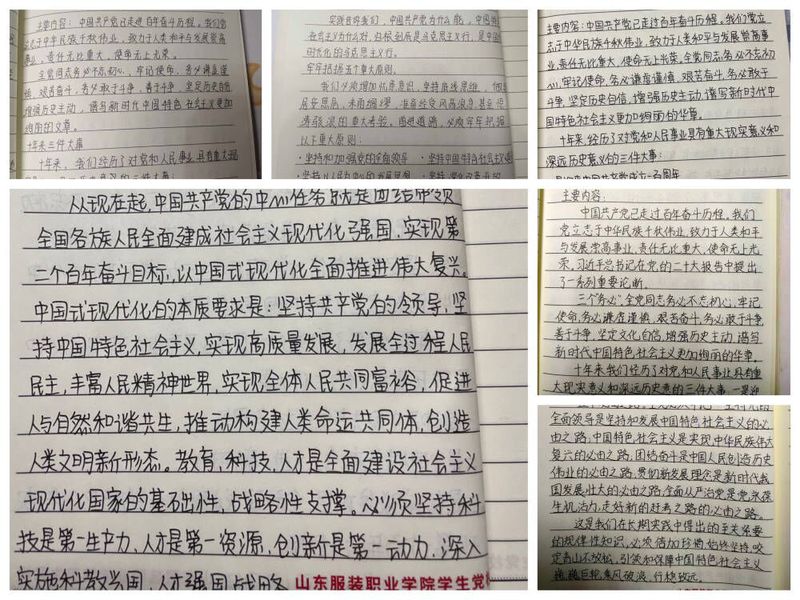 主要内容: 中国共产党已走过百年奋斗历程。我们党
立志于中华民族千秋伟业, 致力于人类和平与发展崇高
事业, 责任无比重大, 使命无上光荣。
全党同志务必不忘初心、牢记使命, 务必谦虚谨
慎、艰苦奋斗, 务必敢于斗争、善于斗争, 坚定历史自信,
增强历史主动, 谱写新时代中国特色社会主义更加
绚丽的文章。
十年来三件大事
十年来, 我们经历了对党和人民事业具有重大现
实践告诉我们, 中国共产党为什么能, 中国特
色社会主义为什么好, 归根到底是马克思主义行, 是中国
化时代化的马克思主义行。
牢牢把握五个重大原则。
我们必须增加忧患意识, 坚持底线思维,
居安思危、未雨绸缪, 准备经受风高浪急甚至惊
涛骇浪的重大考验。前进道路, 必须牢牢把握
以下重大原则:
·坚持和加强党的全面领导 ·坚持中国特色社会主义道
·坚持以人民为中心的发展思想 ·坚持深化改革开
主要内容: 中国共产党已走过百年奋斗历程。我们党立
志于中华民族千秋伟业, 致力于人类和平与发展崇高事
业, 责任无比重大, 使命无上光荣。全党同志务必不忘初
心、牢记使命, 务必谦虚谨慎、艰苦奋斗, 务必敢于斗争、善于
斗争, 坚定历史自信, 增强历史主动, 谱写新时代中
国特色社会主义更加绚丽的华章。
十年来, 经历了对党和人民事业具有重大现实意义和
深远历史意义的三件大事:
一是迎来中国共产党成立一百周年
从现在起, 中国共产党的中心任务就是团结带领
全国各族人民全面建成社会主义现代化强国、实现第
二个百年奋斗目标, 以中国式现代化全面推进伟大复兴。
中国式现代化的本质要求是: 坚持共产党的领导, 坚
持中国特色社会主义, 实现高质量发展, 发展全过程人民
民主, 丰富人民精神世界, 实现全体人民共同富裕, 促进
人与自然和谐共生, 推动构建人类命运共同体, 创造
人类文明新形态。教育、科技、人才是全面建设社会主义
现代化国家的基础性、战略性支撑。必须坚持科
技是第一生产力、人才是第一资源、创新是第一动力, 深入
实施科教兴国、人才强国战略
山东服装职业学院学生党
主要内容:
中国共产党已走过百年奋斗历程。我们
党立志于中华民族千秋伟业, 致力于人类和平
与发展崇高事业, 责任无比重大, 使命无上光
荣。习近平总书记在党的二十大报告中提出
了一系列重要论断。
三个“务必”全党同志务必不忘初心、牢记
使命, 务必谦虚谨慎、艰苦奋斗, 务必敢于斗争、
善于斗争, 坚定文化自信, 增强历史主动, 谱写
新时代中国特色社会主义更加绚丽的华章。
十年来我们经历了对党和人民事业具有重
大现实意义和深远历史意的三件大事: 一是迎
全面领导是坚持和发展中国特色社会主义的必
由之路, 中国特色社会主义是实现中华民族伟大
复兴的必由之路, 团结奋斗是中国人民创造历史
伟业的必由之路, 贯彻新发展理念是新时代我
国发展壮大的必由之路, 全面从严治党是党永葆
生机活力、走好新的赶考之路的必由之路。
这是我们在长期实践中得出的至关紧要
的规律性知识, 必须倍加珍惜、始终坚持, 咬
定青山不放松, 引领和保障中国特色社会主义
巍巍巨轮乘风破浪、行稳致远。